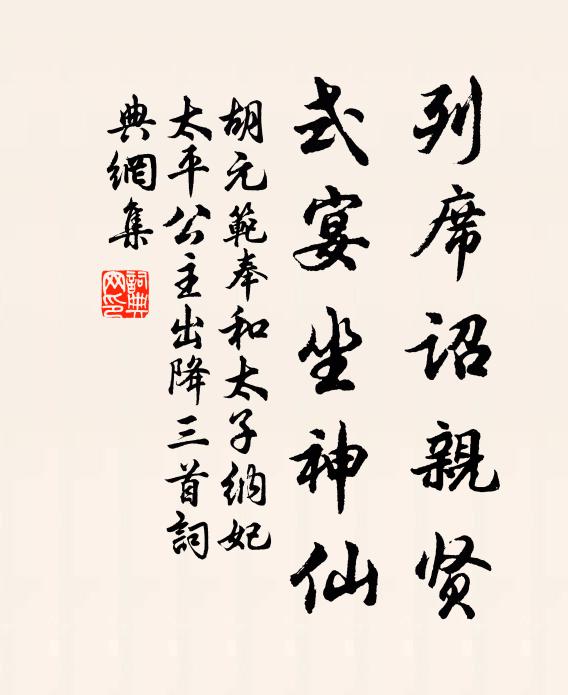 列席詔親贤
式宴坐神仙
胡元範奉和太子納妃
太平公主出降三首詞
典網集
詞典網印